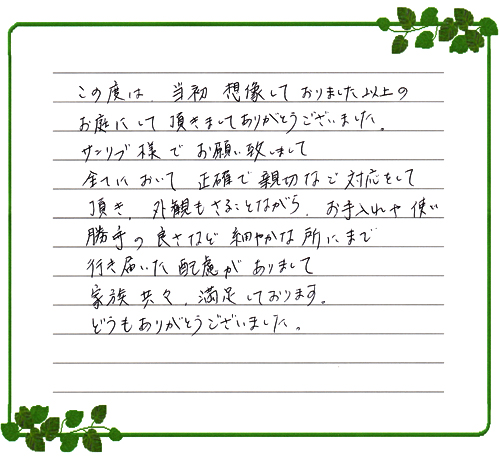 この度は、当初 想像して おりました以上の
お庭にして 頂きましてありがとうございました。
サンリブ様で お願い致しまして
全てにおいて 正確で親切なご対応をして
頂き、外観もさることながら、お手入れや使い
勝手の良さなど 細やかな所にまで
行き届いた配慮が ありまして
家族共々、満足しております。
どうもありがとうございました。